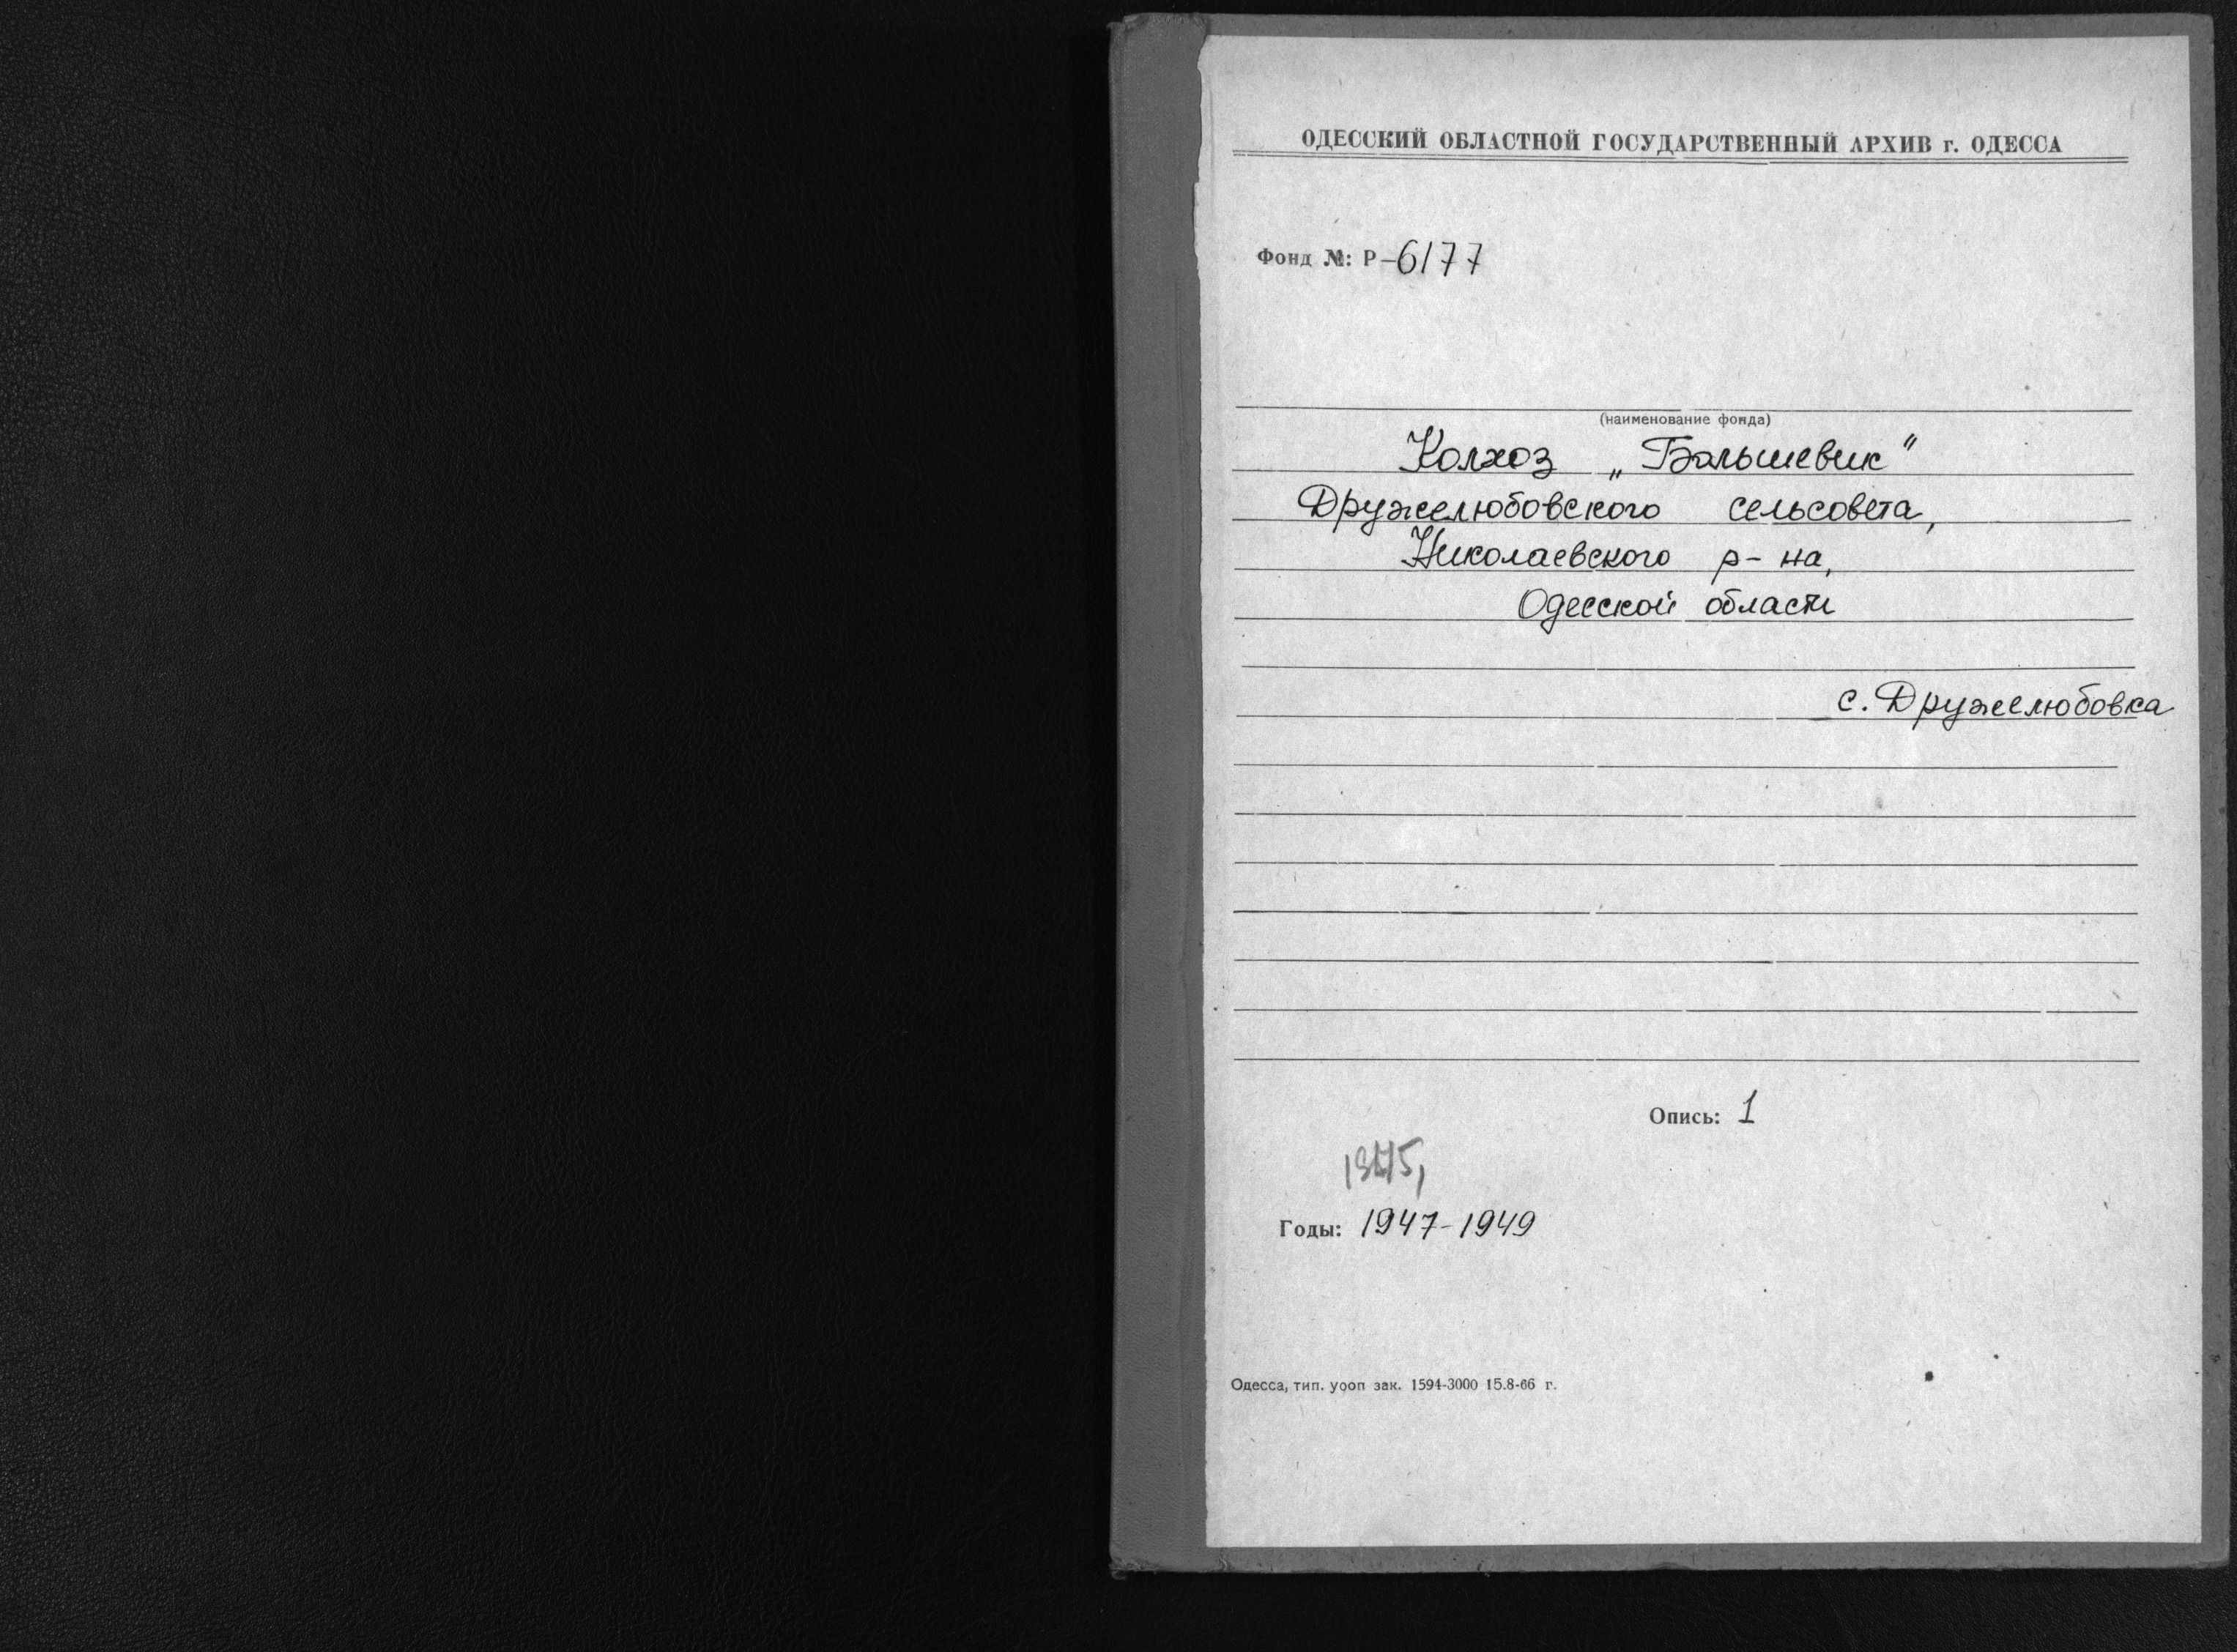 ОДЕССКИЙ ОБЛАСТНОЙ ГОСУДАРСТВЕННЫЙ АРХИВ г. ОДЕССА
Фонд №: Р-6177
(наименование фонда)
Колхоз „Большевик"
Дружелюбовского сельсовета,
Николаевского р-на,
Одесской области
с. Дружелюбовка
Опись: 1
1945,
Годы: 1947-1949
Одесса, тип. уооп зак. 1594-3000 15.8-66 г.